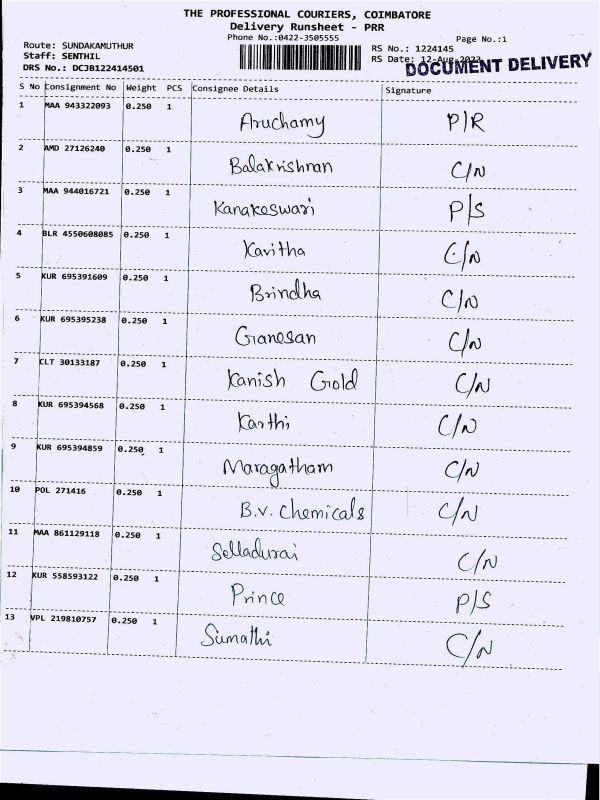 THE PROFESSIONAL COURIERS, COIMBATORE
Delivery Runsheet - PRR
Phone No.:0422-3505555
Page No.:1
Route: SUNDAKAMUTHUR
RS No.: 1224145
Staff: SENTHIL
RS Date: 12-Aug-2022
DRS No.: DCJB122414501
DOCUMENT DELIVERY
S No Consignment No Weight PCS Consignee Details Signature
1 MAA 943322093 0.250 1 Aruchamy P/R
2 AMD 27126240 0.250 1 Balakrishnan C/N
3 MAA 944016721 0.250 1 Kanakeswari P/S
4 BLR 4550608085 0.250 1 Kavitha C/N
5 KUR 695391609 0.250 1 Brindha C/N
6 KUR 695395238 0.250 1 Ganesan C/N
7 CLT 30133187 0.250 1 Kanish Gold C/N
8 KUR 695394568 0.250 1 Karthi C/N
9 KUR 695394859 0.250 1 Maragatham C/N
10 POL 271416 0.250 1 B.V. Chemicals C/N
11 MAA 861129118 0.250 1 Selladurai C/N
12 KUR 558593122 0.250 1 Prince P/S
13 VPL 219810757 0.250 1 Sumathi C/N